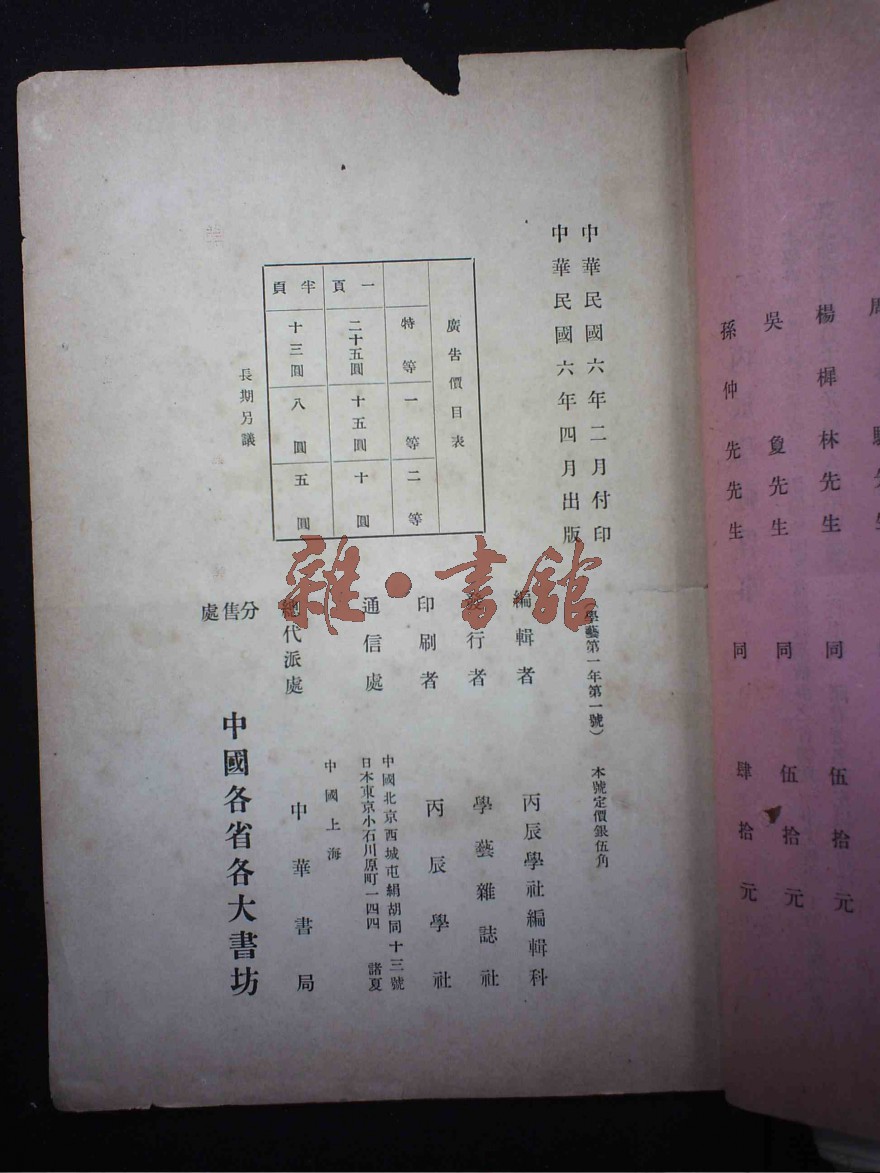 周
楊樨林先生 同 伍拾元
吳 夐先生 同 伍拾元
孫仲先先生 同 肆拾元
中華民國六年二月付印
中華民國六年四月出版
(學藝第一年第一號) 本號定價銀伍角
編輯者 丙辰學社編輯科
發行者 學藝雜誌社
印刷者 丙辰學社
通信處 中國北京西城屯絹胡同十三號
日本東京小石川原町一四四 諸夏
總代派處 中國上海 中華書局
分售處 中國各省各大書坊
廣告價目表
特等 一等 二等
一頁 二十五圓 十五圓 十圓
半頁 十三圓 八圓 五圓
長期另議
雜·書館